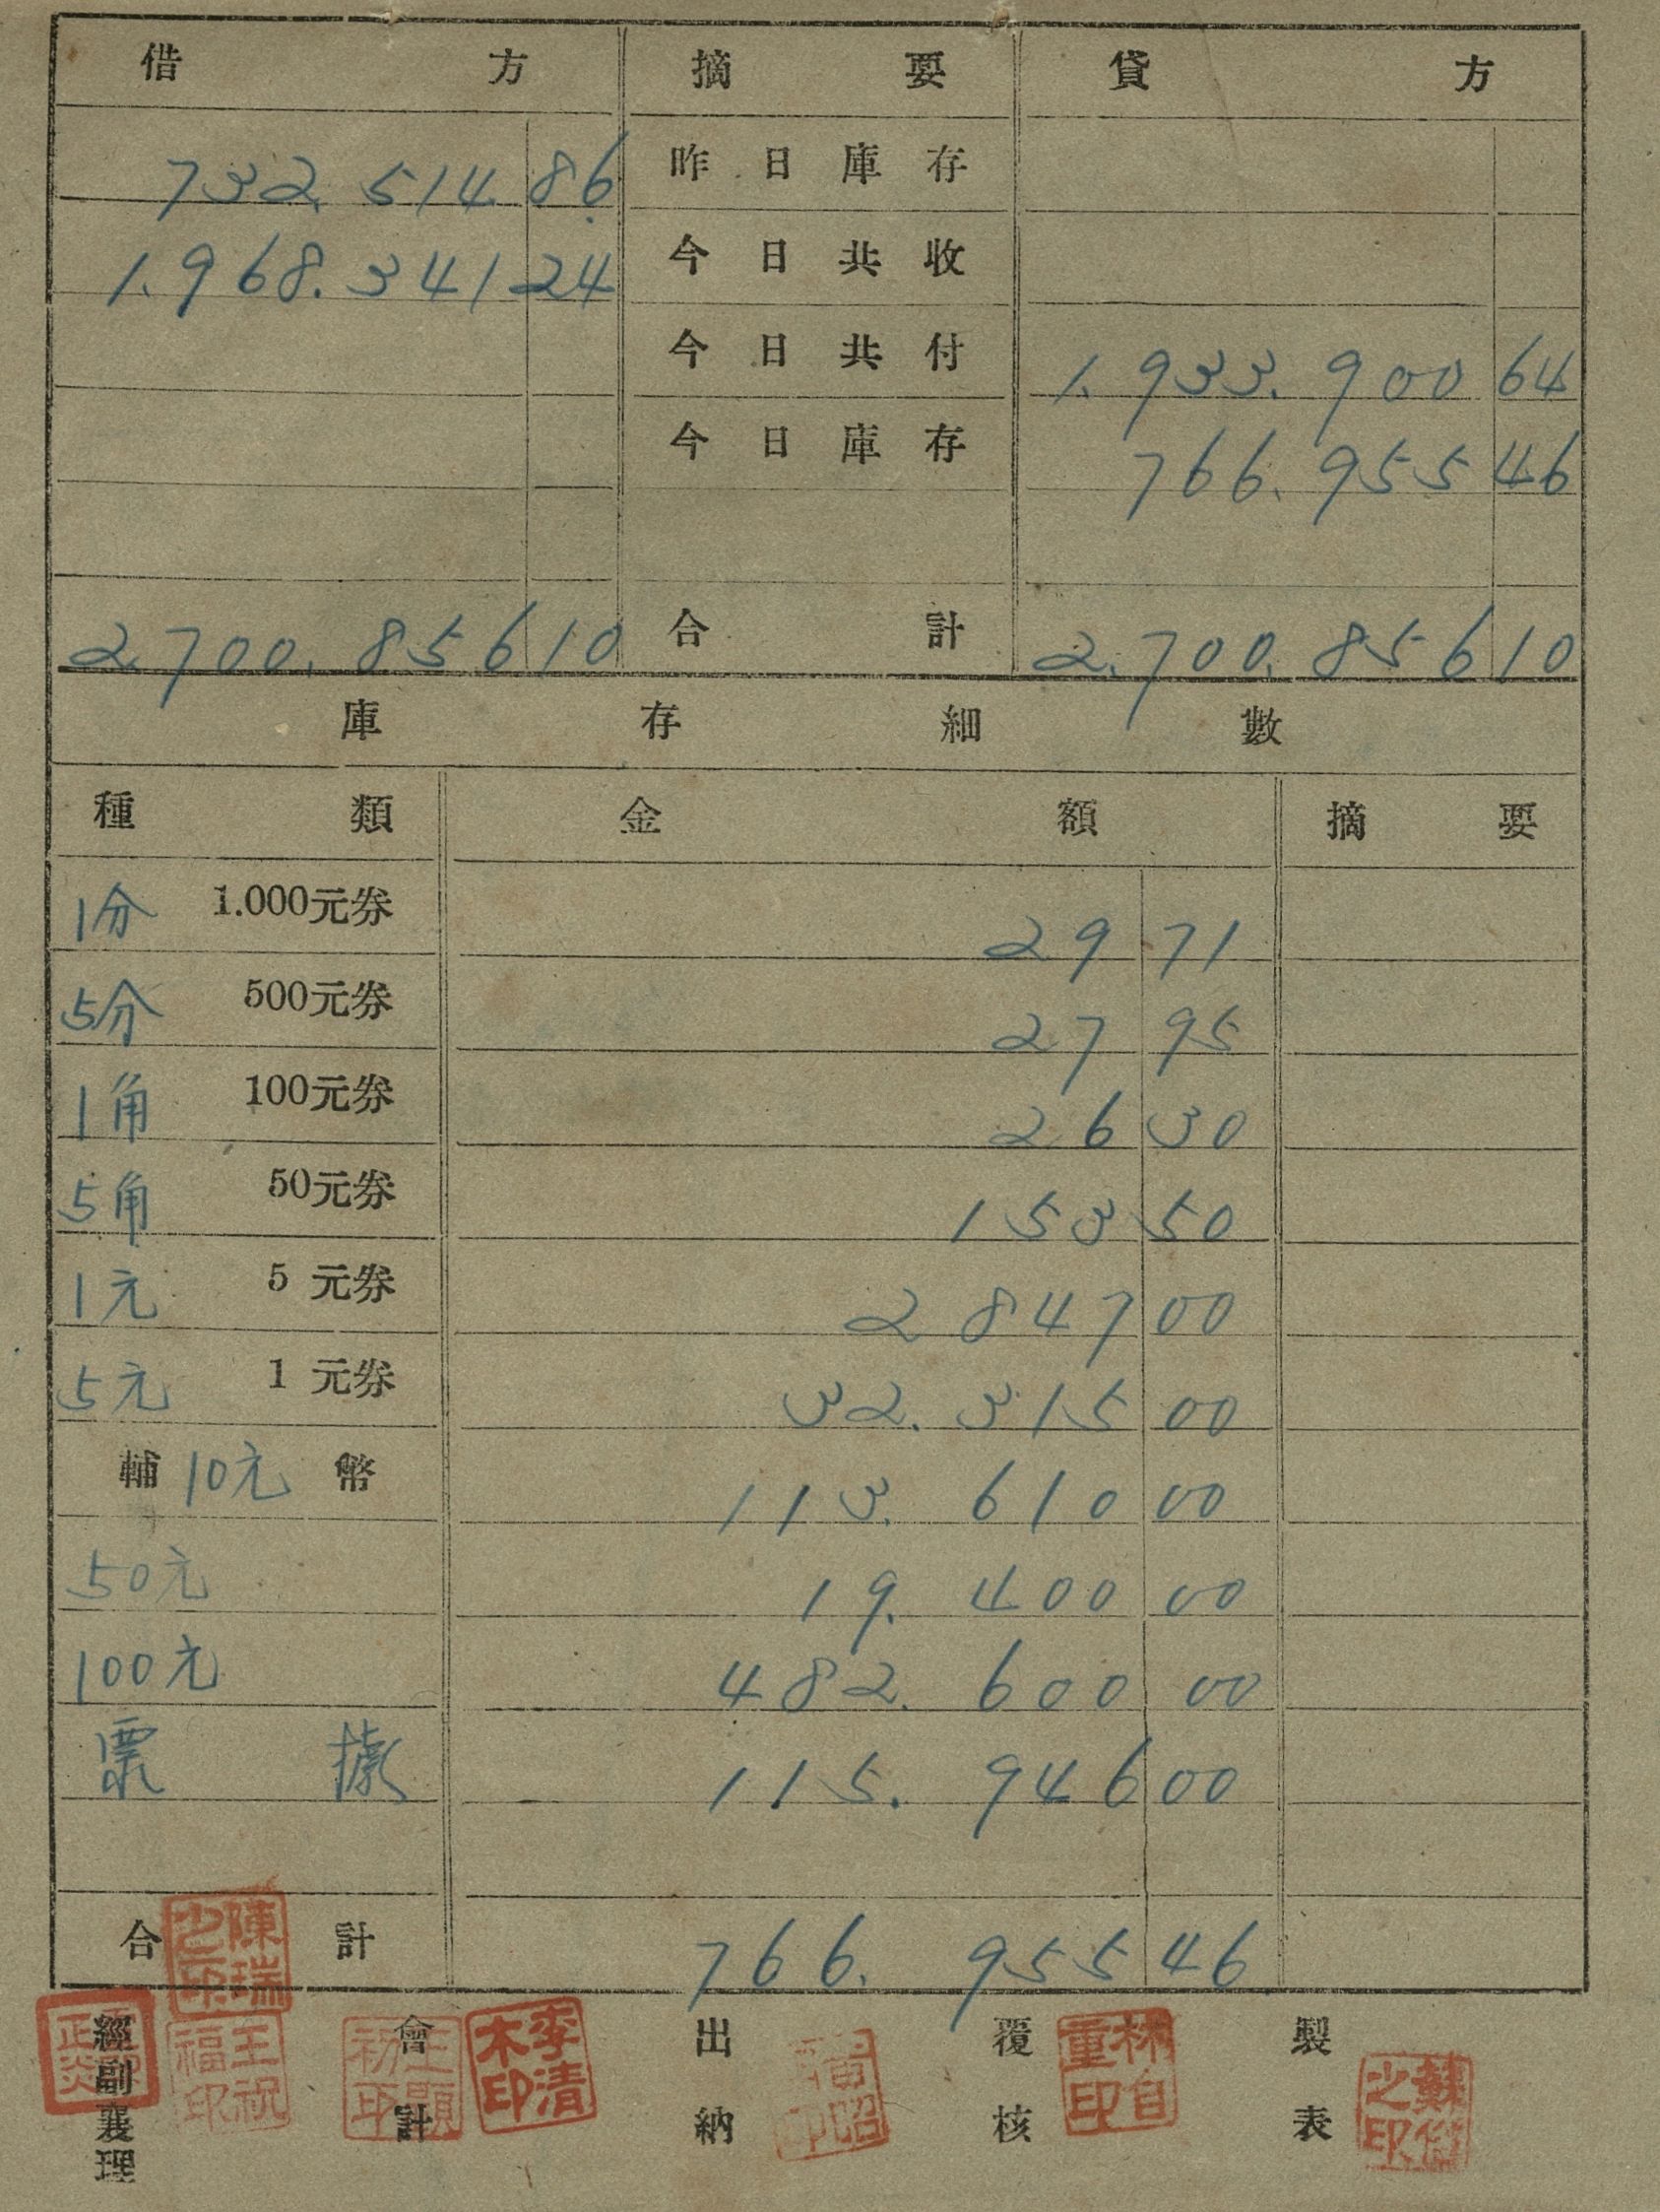 借方 摘要 貸方
732.514.86 昨日庫存
1.968.341 24 今日共收
今日共付 1.933.900 64
今日庫存 766.955 46
2700.856 10 合計 2.700.856 10
庫存細數
種類 金額 摘要
1分 1.000元券 29 71
5分 500元券 27 95
1角 100元券 26 30
5角 50元券 153 50
1元 5元券 2847 00
5元 1元券 32.315 00
輔 10元 幣 113.610 00
50元 19.400 00
100元 482.600 00
票據 115.946 00
合計 766.955 46
陳瑞之印
經副襄理 王祝福印 會計 李清木印 出納 覆核 林自重印 製表